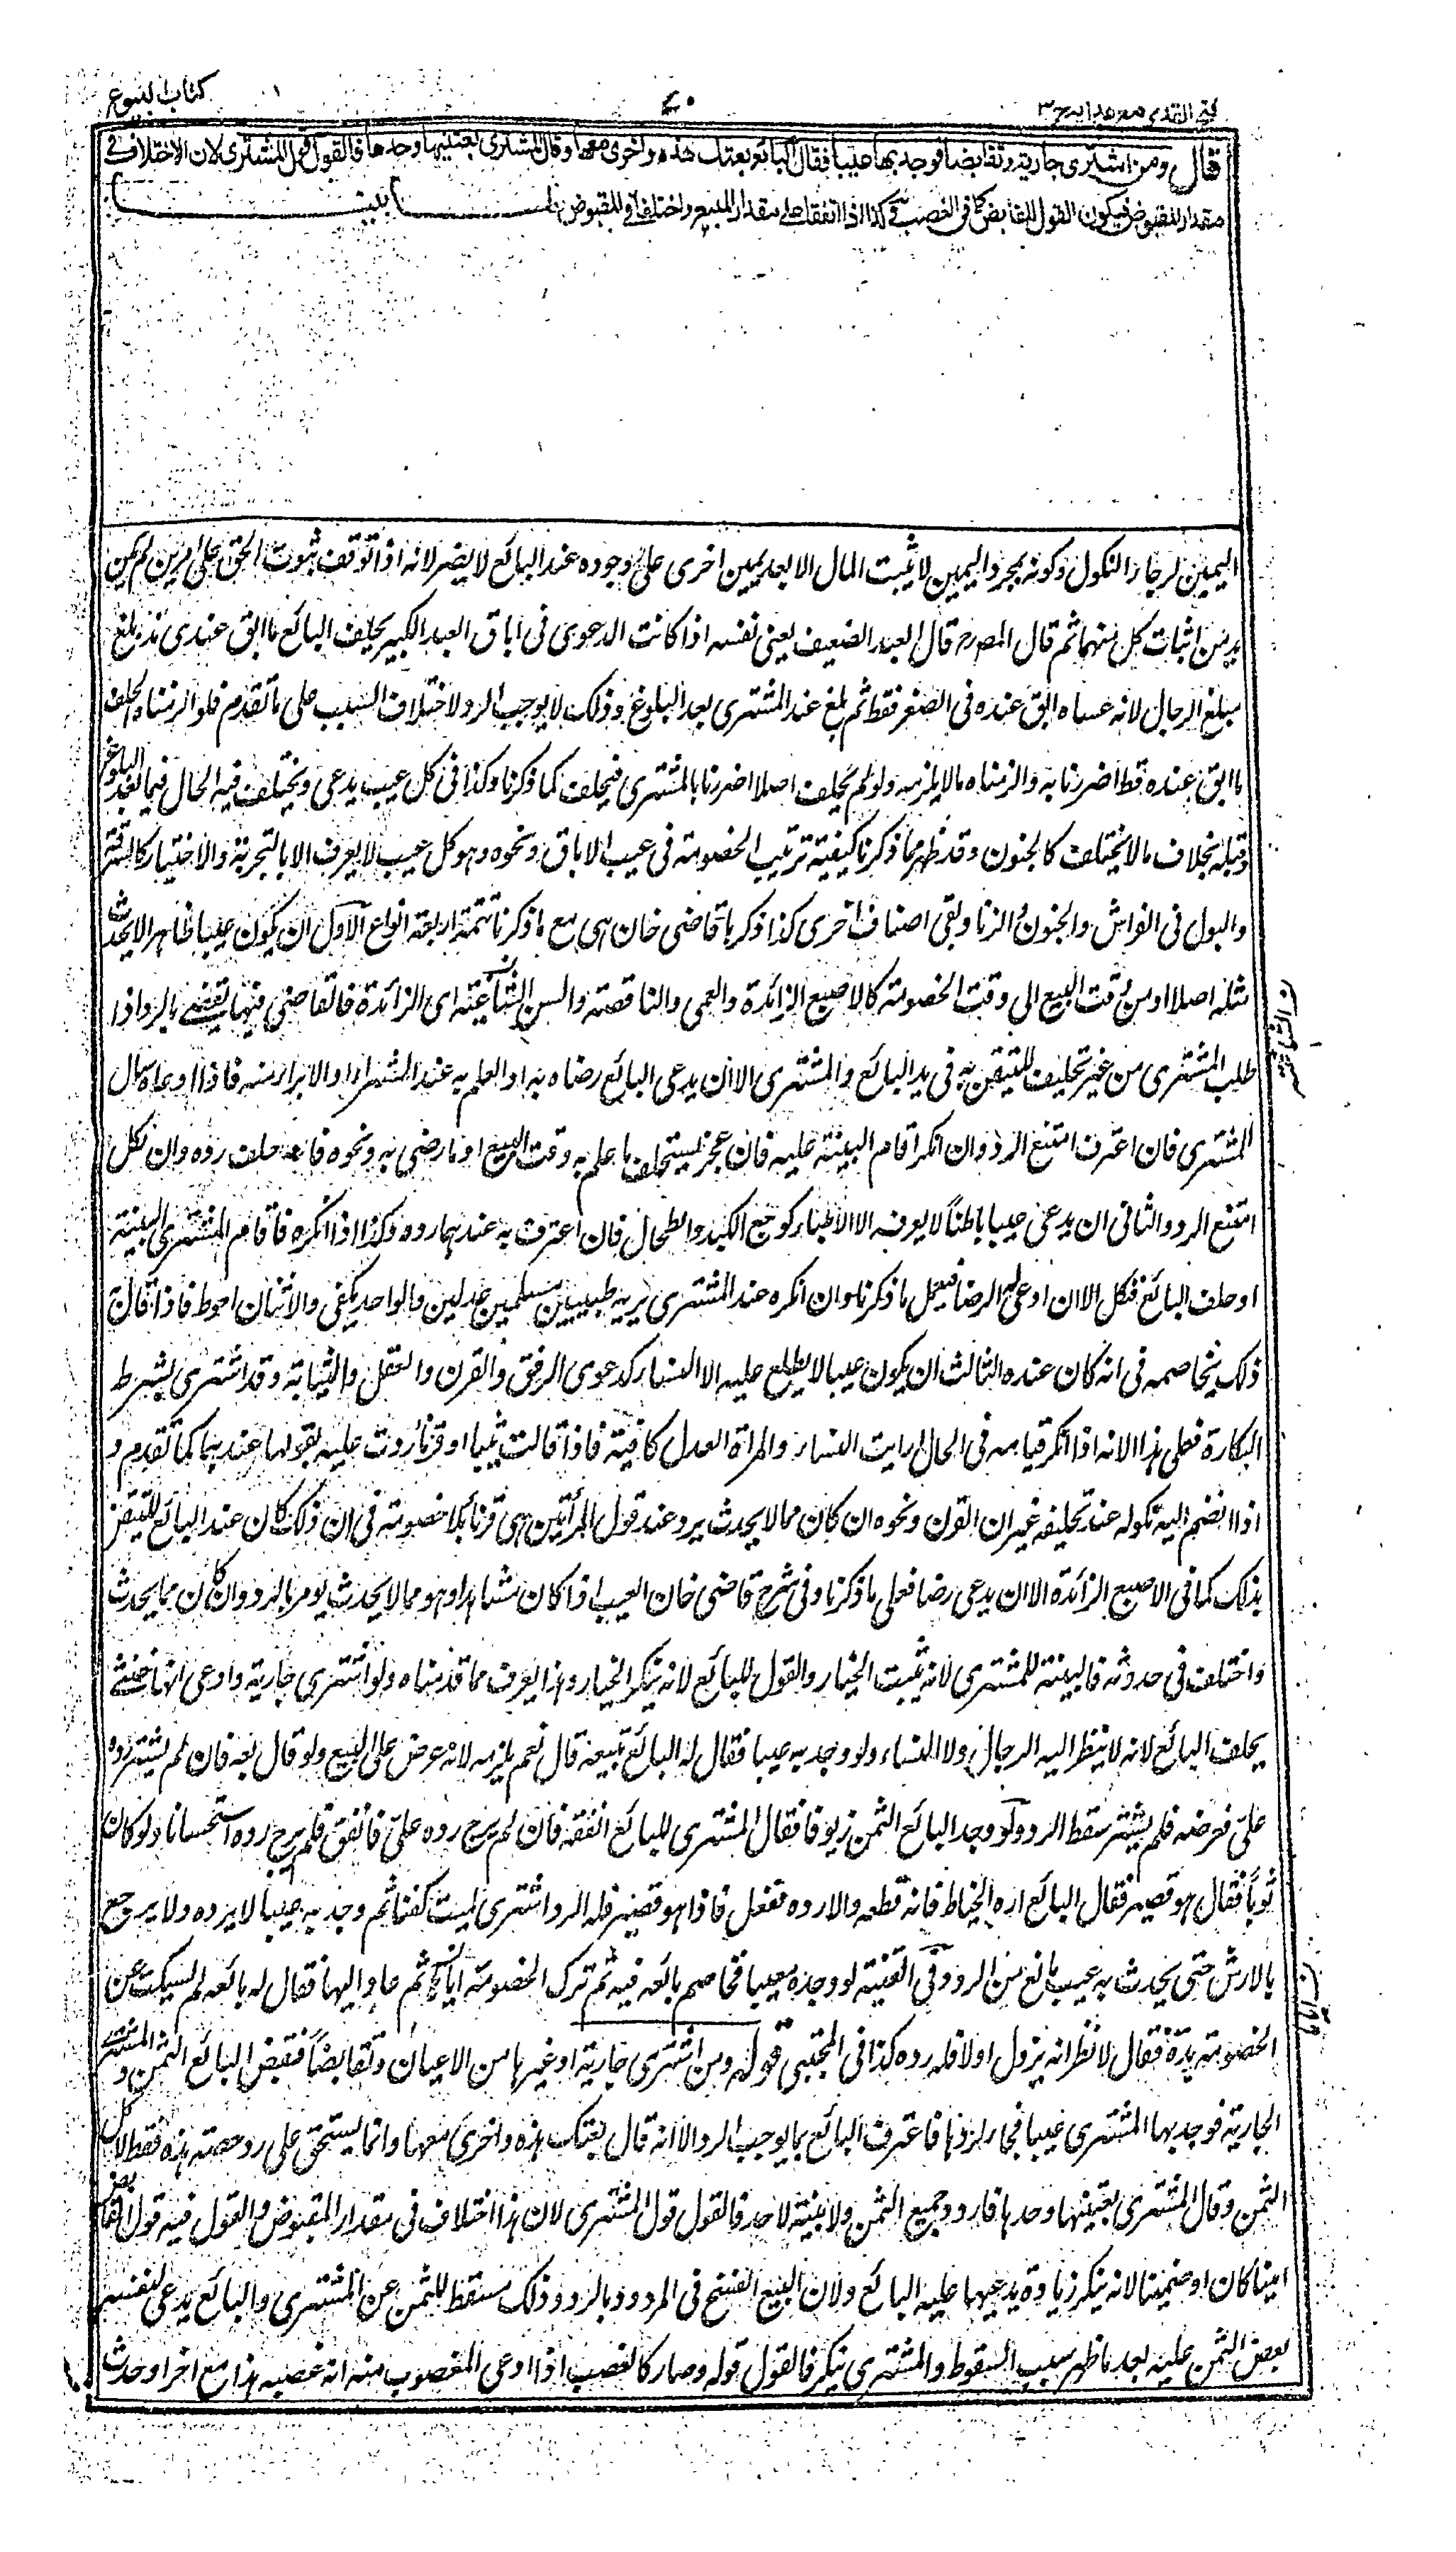 كتاب البيوع
٧٠
فتح القدير مع هدايه ج٣
قال ومن اشترى جارية وتقابضا فوجد بها عيبا فقال البائع بعتك هذه واخرى معها وقال المشترى بعتنيها وحدها فالقول قول المشترى لان الاختلاف فى
مقدار المقبوض فيكون القول للقابض كما فى الغصب وكذا اذا اتفقا على مقدار المبيع واختلفا فى المقبوض لما بيّنا
اليمين لرجاء النكول وكونه بمجرد اليمين لا يثبت المال الا بعد يمين اخرى على وجوده عند البائع لا يضر لانه اذا توقف ثبوت الحق على امرين لم يكن
بد من اثبات كل منهما ثم قال المصرح قال العبد الضعيف يعنى نفسه اذا كانت الدعوى فى اباق العبد الكبير يحلف البائع ما ابق عندى منذ بلغ
مبلغ الرجال لانه عساه ابق عنده فى الصغر فقط ثم بلغ عند المشترى بعد البلوغ وذلك لا يوجب الرد لاختلاف السبب على ما تقدم فلو الزمناه الحلف
ما ابق عنده قط اضررنا به والزمناه مالا يلزمه ولو لم يحلف اصلا اضررنا بالمشترى فيحلف كما ذكرنا وكذا فى كل عيب يدعى ويختلف فيه الحال فيما بعد البلوغ
وقبله بخلاف مالا يختلف كالجنون وقد ظهر مما ذكرنا كيفية ترتيب الخصومة فى عيب الاباق ونحوه وهو كل عيب لا يعرف الا بالتجربة والاختبار كالسرقة
والبول فى الفراش والجنون والزنا وبقى اصناف اخرى كذا ذكرها قاضى خان هى مع ما ذكرنا تتمة اربعة انواع الاول ان يكون عيبا ظاهرا لا يحدث
مثله اصلا او من وقت البيع الى وقت الخصومة كالاصبع الزائدة والعمى والناقصة والسن الشاغية اى الزائدة فالقاضى فيها يقضى بالرد اذا
طلب المشترى من غير تحليف للتيقن به فى يد البائع والمشترى الا ان يدعى البائع رضاه به او العلم به عند الشراء او الابراء منه فاذا ادعاه سال
المشترى فان اعترف امتنع الرد وان انكر اقام البينة عليه فان عجز يستحلف ما علم به وقت البيع او ما رضى به ونحوه فان حلف رده وان نكل
امتنع الرد والثانى ان يدعى عيبا باطنا لا يعرفه الا الاطباء كوجع الكبد والطحال فان اعترف به عندهما رده وكذا اذا انكره فاقام المشترى البينة
او حلف البائع فنكل الا ان ادعى الرضا فيعمل ما ذكرنا وان انكره عند المشترى يريه طبيبين مسلمين عدلين والواحد يكفى والاثنان احوط فاذا قال
ذلك يخاصمه فى انه كان عنده الثالث ان يكون عيبا لا يطلع عليه الا النساء كدعوى الرتق والقرن والعفل والثيابة وقد اشترى بشرط
البكارة فعلى هذا الا انه اذا انكر قيامه فى الحال اريت النساء والمراة العدل كافية فاذا قالت ثيبا او قرناء ردت عليه بقولها عندهما كما تقدم و
اذا انضم اليه نكوله عند تحليفه غير ان القرن ونحوه ان كان مما لا يحدث يرد عند قول المرأتين هى قرناء بلا خصومة فى ان ذلك كان عند البائع للتيقن
بذلك كما فى الاصبع الزائدة الا ان يدعى رضا فعلى ما ذكرنا وفى شرح قاضى خان العيب اذا كان مشاهدا وهو مما لا يحدث يومر بالرد وان كان مما يحدث
واختلف فى حدوثه فالبينة للمشترى لانه يثبت الخيار والقول للبائع لانه ينكر الخيار وهذا يعرف مما قدمناه ولو اشترى جارية وادعى انها خنثى
يحلف البائع لانه لا ينظر اليه الرجال ولا النساء ولو وجد به عيبا فقال له البائع تبيعه قال نعم يلزمه لانه عرض على البيع ولو قال بعه فان لم يشتر رده
علىّ فعرضه فلم يشتر سقط الرد ولو وجد البائع الثمن زيوفا فقال المشترى للبائع انفقه فان لم يرج رده علىّ فانفق فلم يرج رده استحسانا ولو كان
ثوبا فقال هو قصير فقال البائع اره الخياط فانه قطعه والا رده ففعل فاذا هو قصير فله الرد اشترى لميت كفنا ثم وجد به عيبا لا يرده ولا يرجع
بالارش حتى يحدث به عيب مانع من الرد وفى القنية لو وجده معيبا فخاصم بائعه فيه ثم ترك الخصومة اياما ثم عاد اليها فقال له بائعه لم سكت عن
الخصومة مدة فقال لانظر انه يزول او لا فله رده كذا فى المجتبى قوله ومن اشترى جارية او غيرها من الاعيان وتقابضا فقبض البائع الثمن و المشترى
الجارية فوجد بها المشترى عيبا فجاء لردها فاعترف البائع بما يوجب الرد الا انه قال بعتك هذه واخرى معها وانما يستحق على رد حصة هذه فقط لا كل
الثمن وقال المشترى بعتنيها وحدها فاردد جميع الثمن ولا بينة لاحد فالقول قول المشترى لان هذا اختلاف فى مقدار المقبوض والقول فيه قول القابض
امينا كان او ضمينا لانه ينكر زيادة يدعيها عليه البائع ولان البيع انفسخ فى المردود بالرد وذلك مسقط للثمن عن المشترى والبائع يدعى لنفسه
بعض الثمن عليه بعد ما ظهر سبب السقوط والمشترى ينكر فالقول قوله وصار كالغصب اذا ادعى المغصوب منه انه غصبه هذا مع اخر او حدث